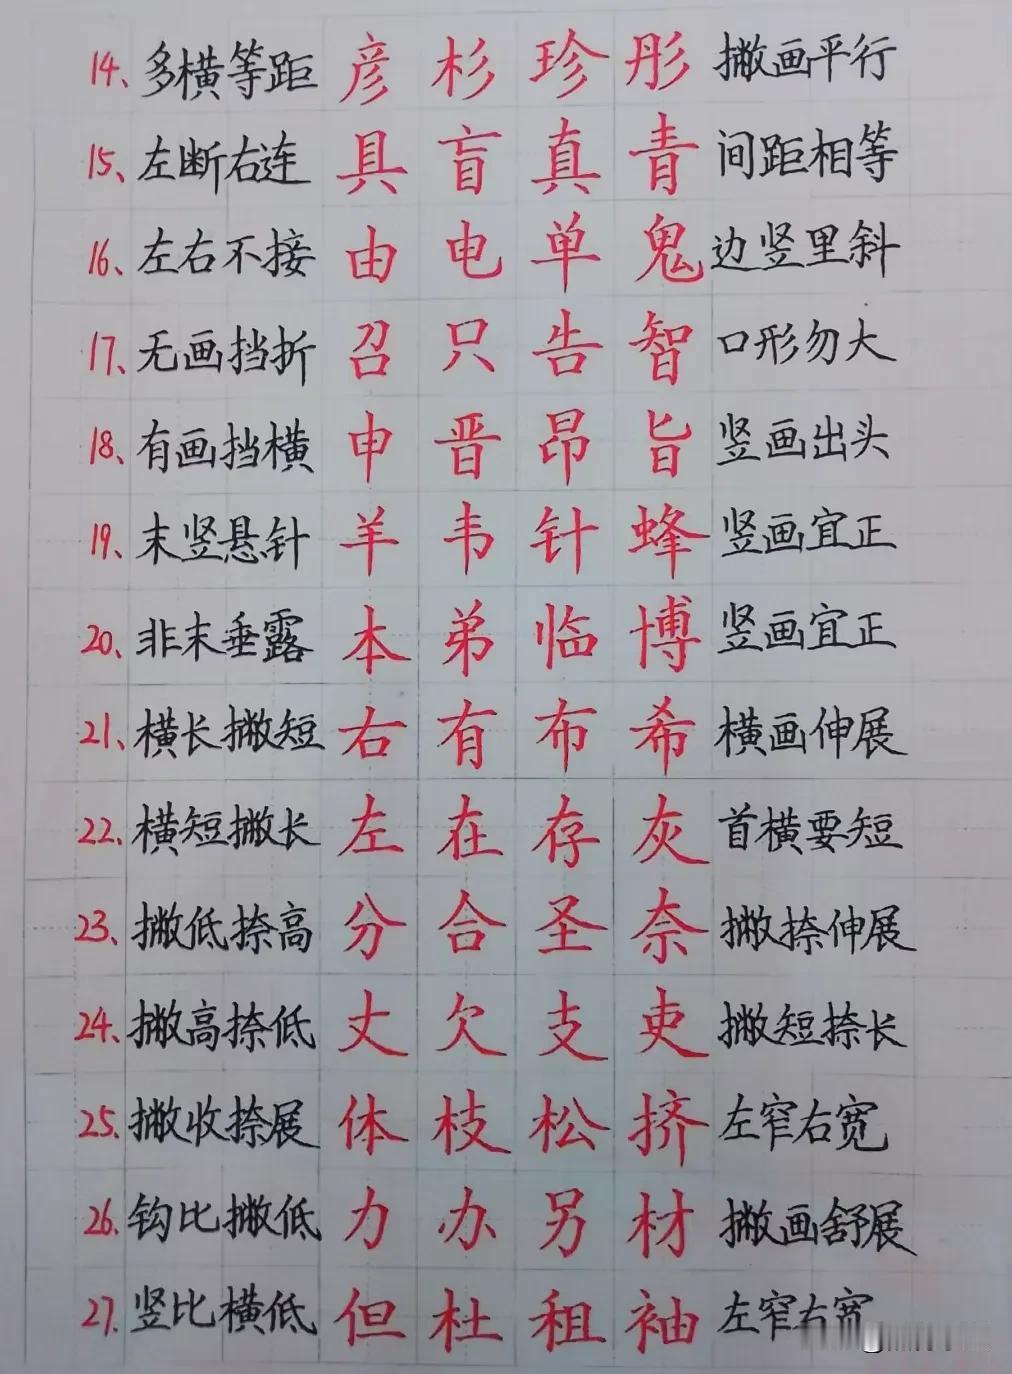 14、多横等距 彦 杉 珍 彤 撇画平行
15、左断右连 具 盲 真 青 间距相等
16、左右不接 由 电 单 鬼 边竖里斜
17、无画挡折 召 只 告 智 口形勿大
18、有画挡横 申 晋 昂 旨 竖画出头
19、末竖悬针 羊 韦 针 蜂 竖画宜正
20、非末垂露 本 弟 临 博 竖画宜正
21、横长撇短 右 有 布 希 横画伸展
22、横短撇长 左 在 存 灰 首横要短
23、撇低捺高 分 合 圣 奈 撇捺伸展
24、撇高捺低 丈 欠 支 吏 撇短捺长
25、撇收捺展 体 枝 松 挤 左窄右宽
26、钩比撇低 力 办 另 材 撇画舒展
27、竖比横低 但 杜 租 袖 左窄右宽